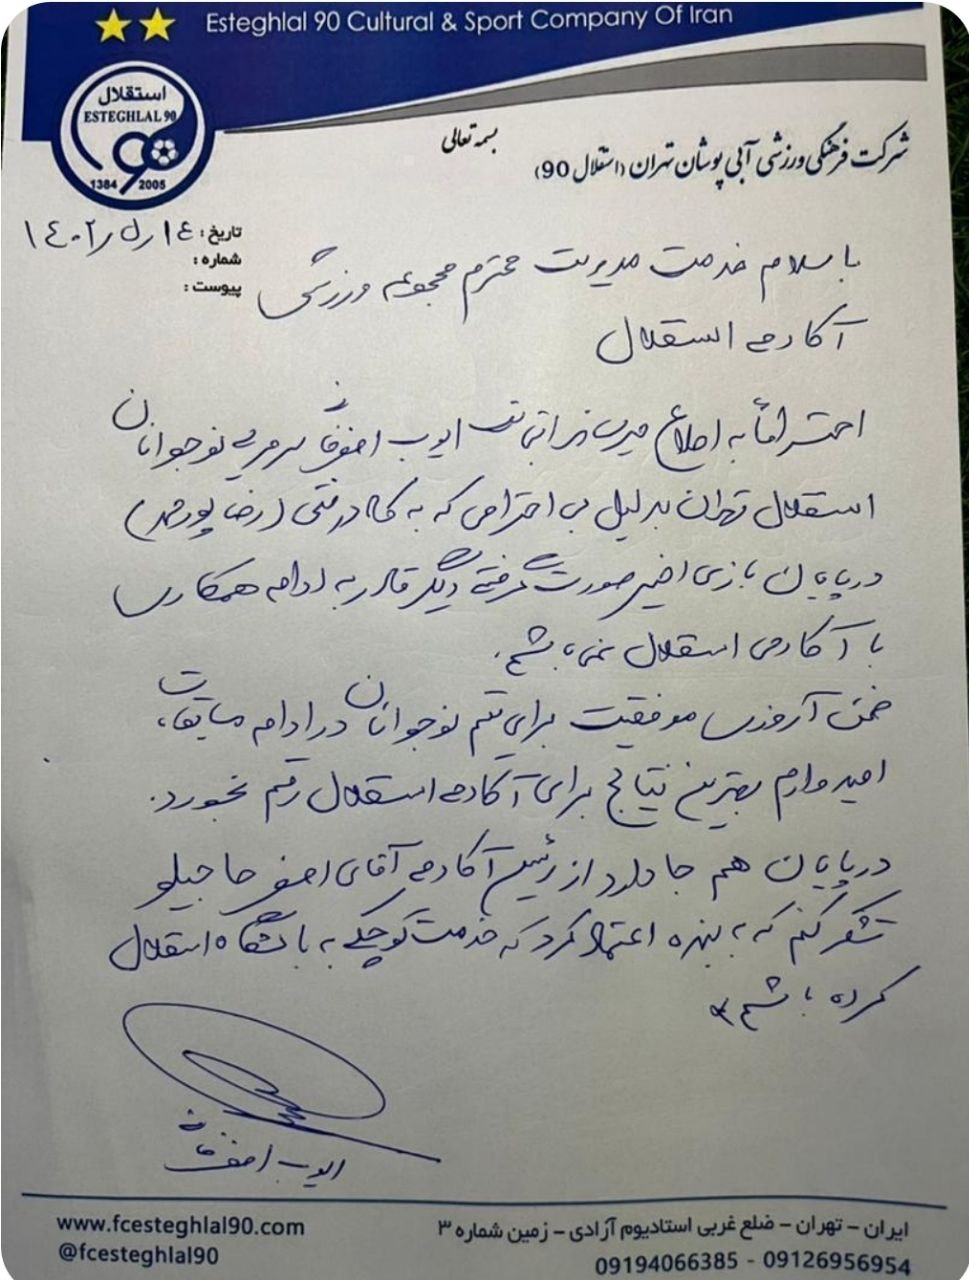 Esteghlal 90 Cultural & Sport Company Of Iran
استقلال
ESTEGHLAL 90
1384 2005
بسمه تعالی
شرکت فرهنگی ورزشی آبی پوشان تهران (استقلال 90)
تاریخ :
شماره :
پیوست :
با سلام خدمت مدیریت محترم مجموعه ورزشی
آکادمی استقلال
احتراماً به اطلاع میرساند اینجانب ایوب اصغرخانی سرمربی نوجوانان
استقلال تهران بدلیل بی احترامی که به کادر فنی (رضا پورمحمد)
در پایان بازی اخیر صورت گرفته دیگر قادر به ادامه همکاری
با آکادمی استقلال نمی باشم.
ضمن آرزوی موفقیت برای تیم نوجوانان در ادامه مسابقات،
امیدوارم بهترین نتایج برای آکادمی استقلال رقم بخورد.
در پایان هم جا دارد از رئیس آکادمی آقای اصغر حاجیلو
تشکر کنم که به بنده اعتماد کرد که خدمت کوچکی به باشگاه استقلال
کرده باشم
ایوب
ایران - تهران - ضلع غربی استادیوم آزادی - زمین شماره ۳
09194066385 - 09126956954
www.fcesteghlal90.com
@fcesteghlal90